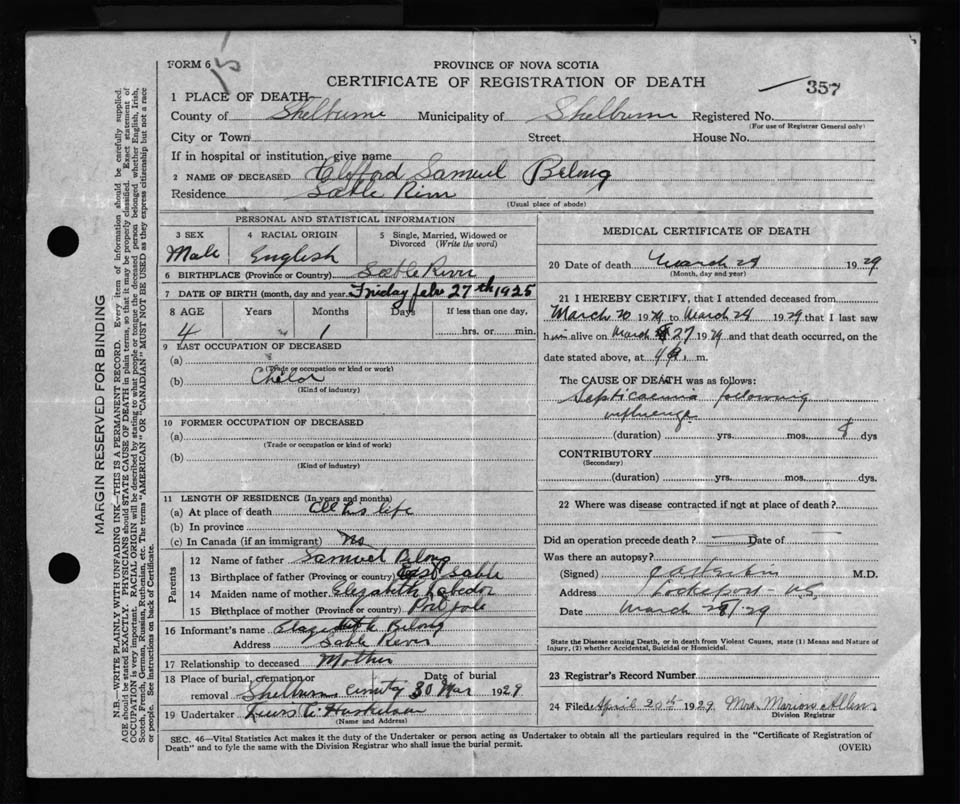 FORM 6
PROVINCE OF NOVA SCOTIA
CERTIFICATE OF REGISTRATION OF DEATH
357
1 PLACE OF DEATH—
County of Shelburne Municipality of Shelburne Registered No.
(For use of Registrar General only)
City or Town Street House No.
If in hospital or institution, give name
2 NAME OF DECEASED Clifford Samuel Belong
Residence Sable River
(Usual place of abode)
PERSONAL AND STATISTICAL INFORMATION
3 SEX 4 RACIAL ORIGIN 5 Single, Married, Widowed or Divorced (Write the word)
Male English
6 BIRTHPLACE (Province or Country) Sable River
7 DATE OF BIRTH (month, day and year) Friday feb 27th 1925
8 AGE Years Months Days If less than one day,
4 1 hrs. or min.
9 LAST OCCUPATION OF DECEASED
(a)
(Trade or occupation or kind or work)
(b)
(Kind of industry)
10 FORMER OCCUPATION OF DECEASED
(a)
(Trade or occupation or kind of work)
(b)
(Kind of industry)
11 LENGTH OF RESIDENCE (In years and months)
(a) At place of death All his life
(b) In province
(c) In Canada (if an immigrant) No
Parents
12 Name of father Samuel Belong
13 Birthplace of father (Province or country) Sable
14 Maiden name of mother Elizabeth
15 Birthplace of mother (Province or country) Port
16 Informant's name Belong
Address Sable River
17 Relationship to deceased Mother
18 Place of burial, cremation or removal Shelburne County Date of burial 30 Mar 1929
19 Undertaker
(Name and Address)
MEDICAL CERTIFICATE OF DEATH
20 Date of death March 28 1929
(Month, day and year)
21 I HEREBY CERTIFY, that I attended deceased from
March 20 1929 to March 28 1929 that I last saw
him alive on March 27 1929 and that death occurred, on the
date stated above, at m.
The CAUSE OF DEATH was as follows:
Septicaemia following
influenza
(duration) yrs. mos. 8 dys
CONTRIBUTORY
(Secondary)
(duration) yrs. mos. dys.
22 Where was disease contracted if not at place of death?
Did an operation precede death? Date of
Was there an autopsy?
(Signed) M.D.
Address Lockeport - N.S.
Date March 28/29
State the Disease causing Death, or in death from Violent Causes, state (1) Means and Nature of
Injury, (2) whether Accidental, Suicidal or Homicidal.
23 Registrar's Record Number
24 Filed April 20th 1929 Mrs. Marion Allen
Division Registrar
SEC. 46—Vital Statistics Act makes it the duty of the Undertaker or person acting as Undertaker to obtain all the particulars required in the "Certificate of Registration of
Death" and to fyle the same with the Division Registrar who shall issue the burial permit.
(OVER)
MARGIN RESERVED FOR BINDING
N.B.—WRITE PLAINLY WITH UNFADING INK—THIS IS A PERMANENT RECORD. Every item of information should be carefully supplied.
AGE should be stated EXACTLY. PHYSICIANS should STATE CAUSE OF DEATH in plain terms, so that it may be properly classified. Exact statement of
OCCUPATION is very important. RACIAL ORIGIN will be described by stating to what people or tongue the deceased person belonged whether English, Irish,
Scotch, French, German, Russian, Ruthenian, etc. The terms "AMERICAN" OR "CANADIAN" MUST NOT BE USED as they express citizenship but not a race
or people. See instructions on back of Certificate.